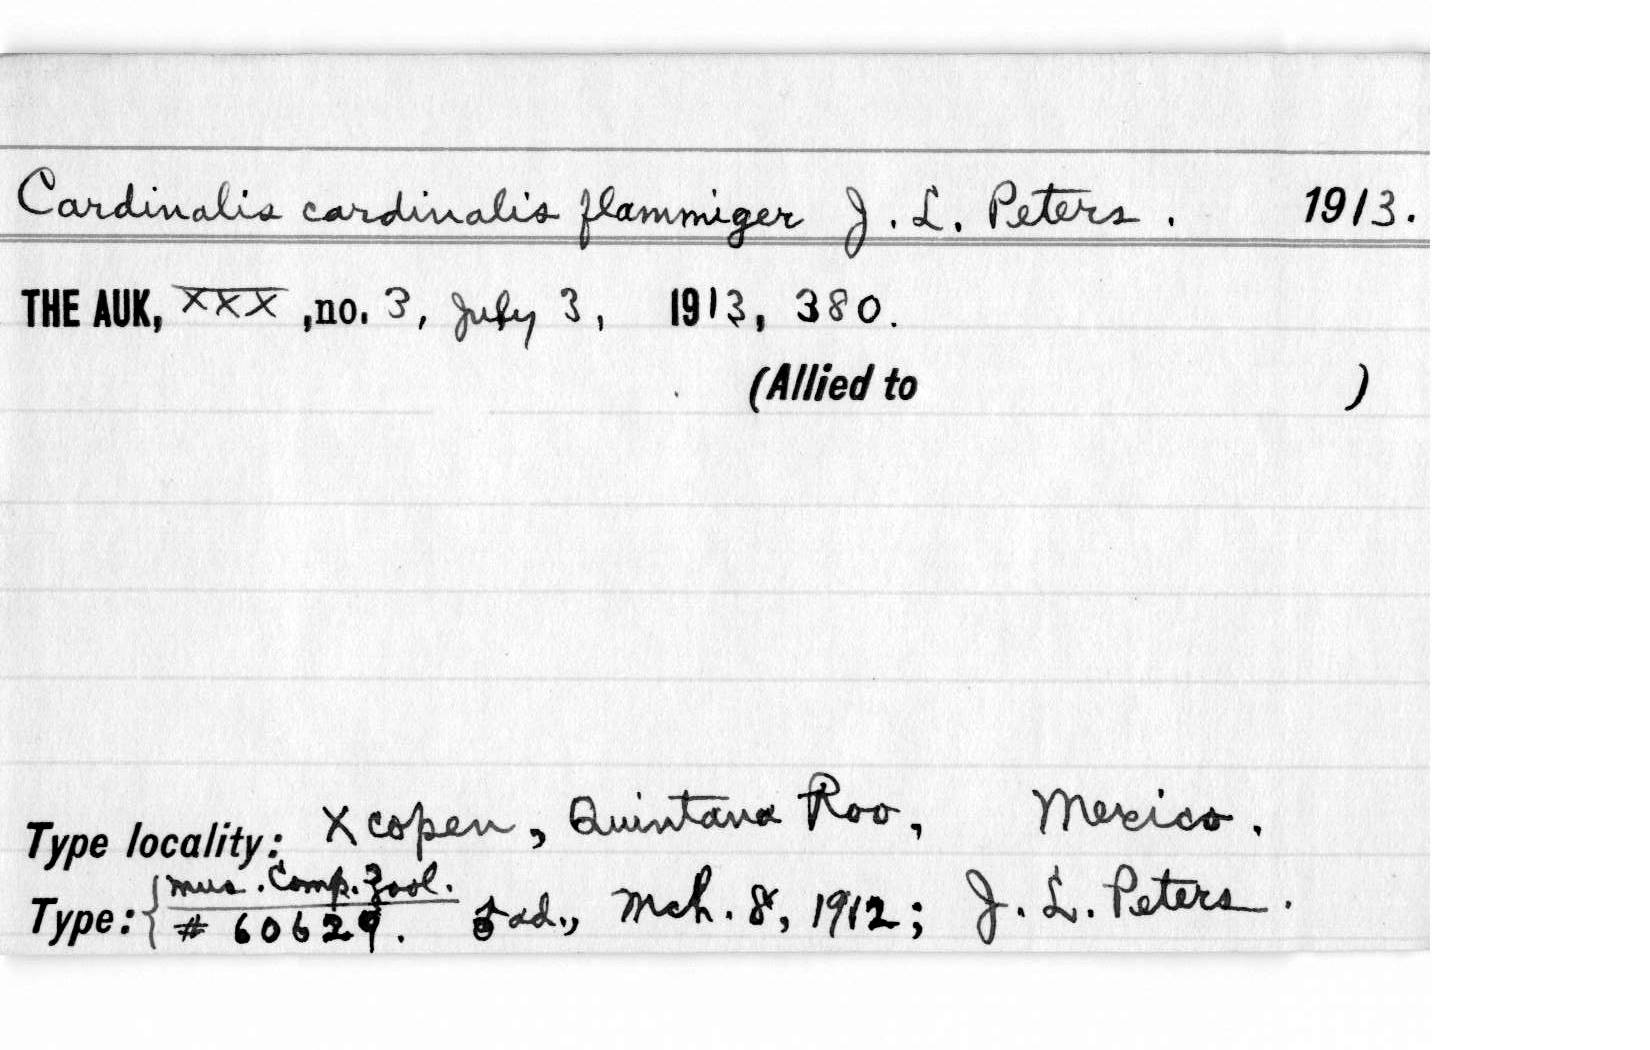 Cardinalis cardinalis flammiger J. L. Peters. 1913.
THE AUK, XXX, no. 3, July 3, 1913, 380.
(Allied to )
Type locality: Xcopen, Quintana Roo, Mexico.
Type: { Mus. Comp. Zool.
# 60629. ♂ ad., Mch. 8, 1912; J. L. Peters.